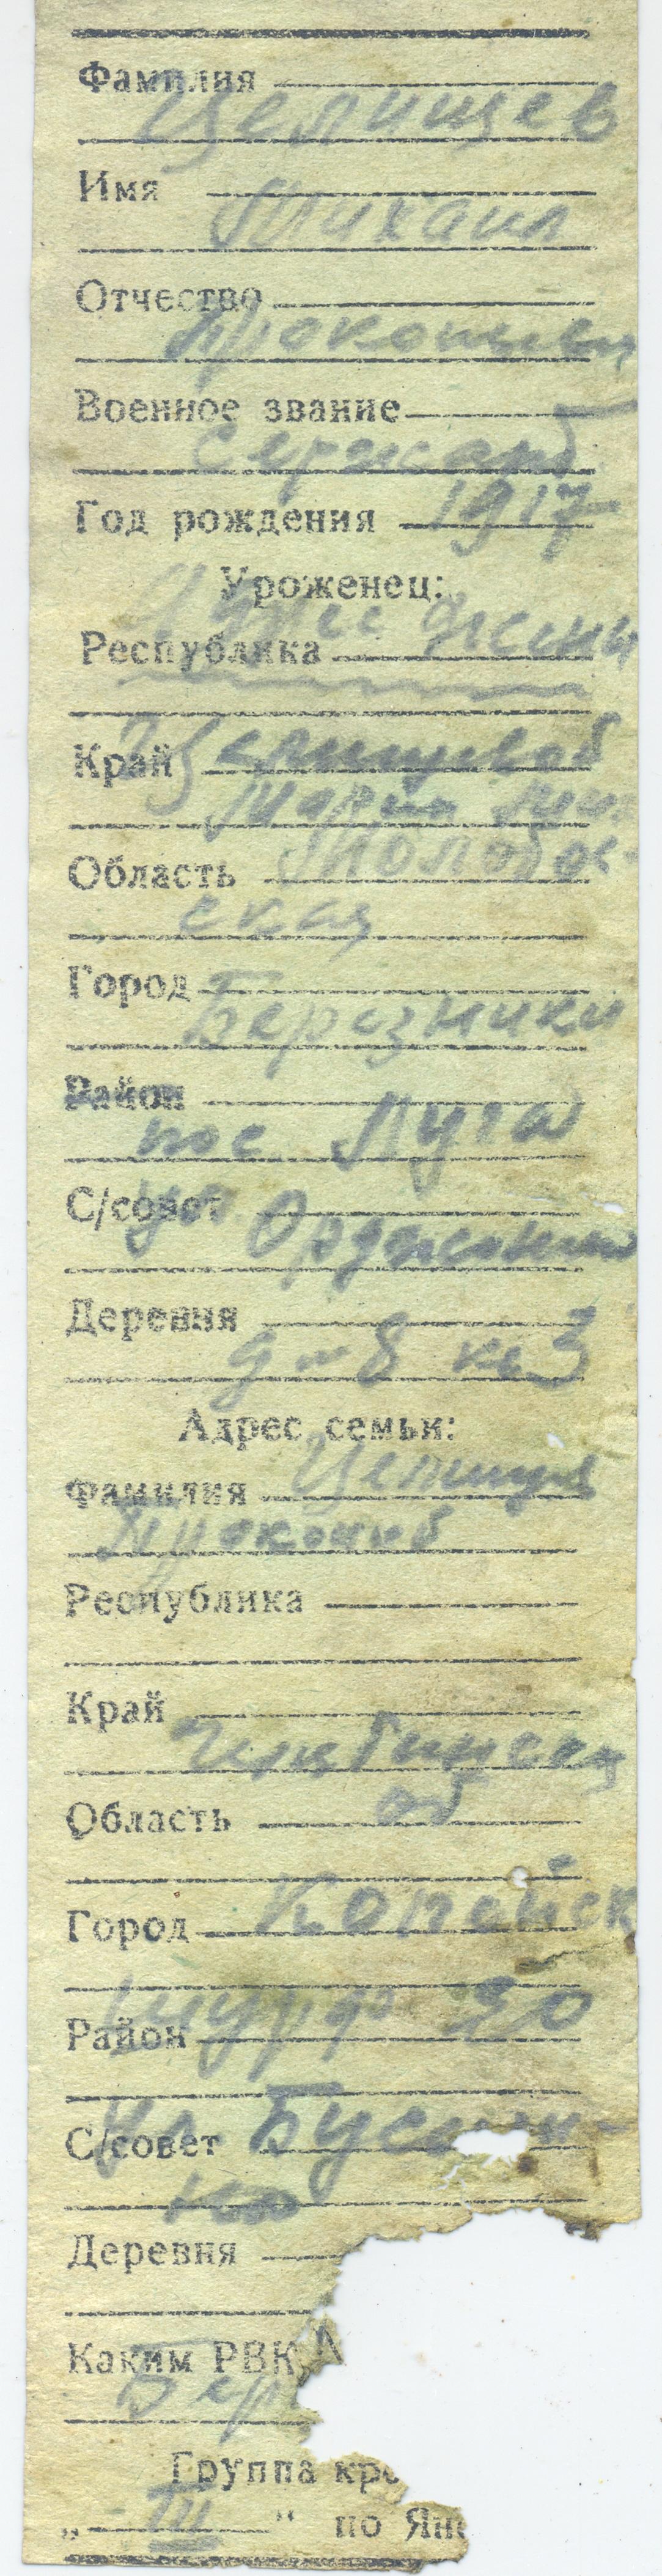 Фамилия
Целищев
Имя
Михаил
Отчество
Прокопьеви
Военное звание
Сержант
Год рождения 1917
Уроженец:
Адрес жены
Республика
Край Целищевой
Мария
Область Молотов-
ская
Город
Березники
Район
пос Луга
С/совет ул Орджоники
Деревня
д - 8 кв 3
Адрес семьи:
Фамилия Целищев
Прокопий
Республика
Край
Челябинская
Область об
Город Копейск
Район Шурф 30
С/совет ул
Деревня
Каким РВК
Бер
Группа кро
„ III “ по Янс